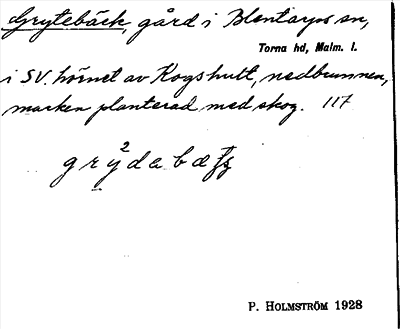 Grytebäck, gård i Blentarps sn,
Torna hd, Malm. l.
i SV. hörnet av Kogshult, nedbrunnen,
marken planterad med skog. 117
2
g r y d a b æ
P. HOLMSTRÖM 1928